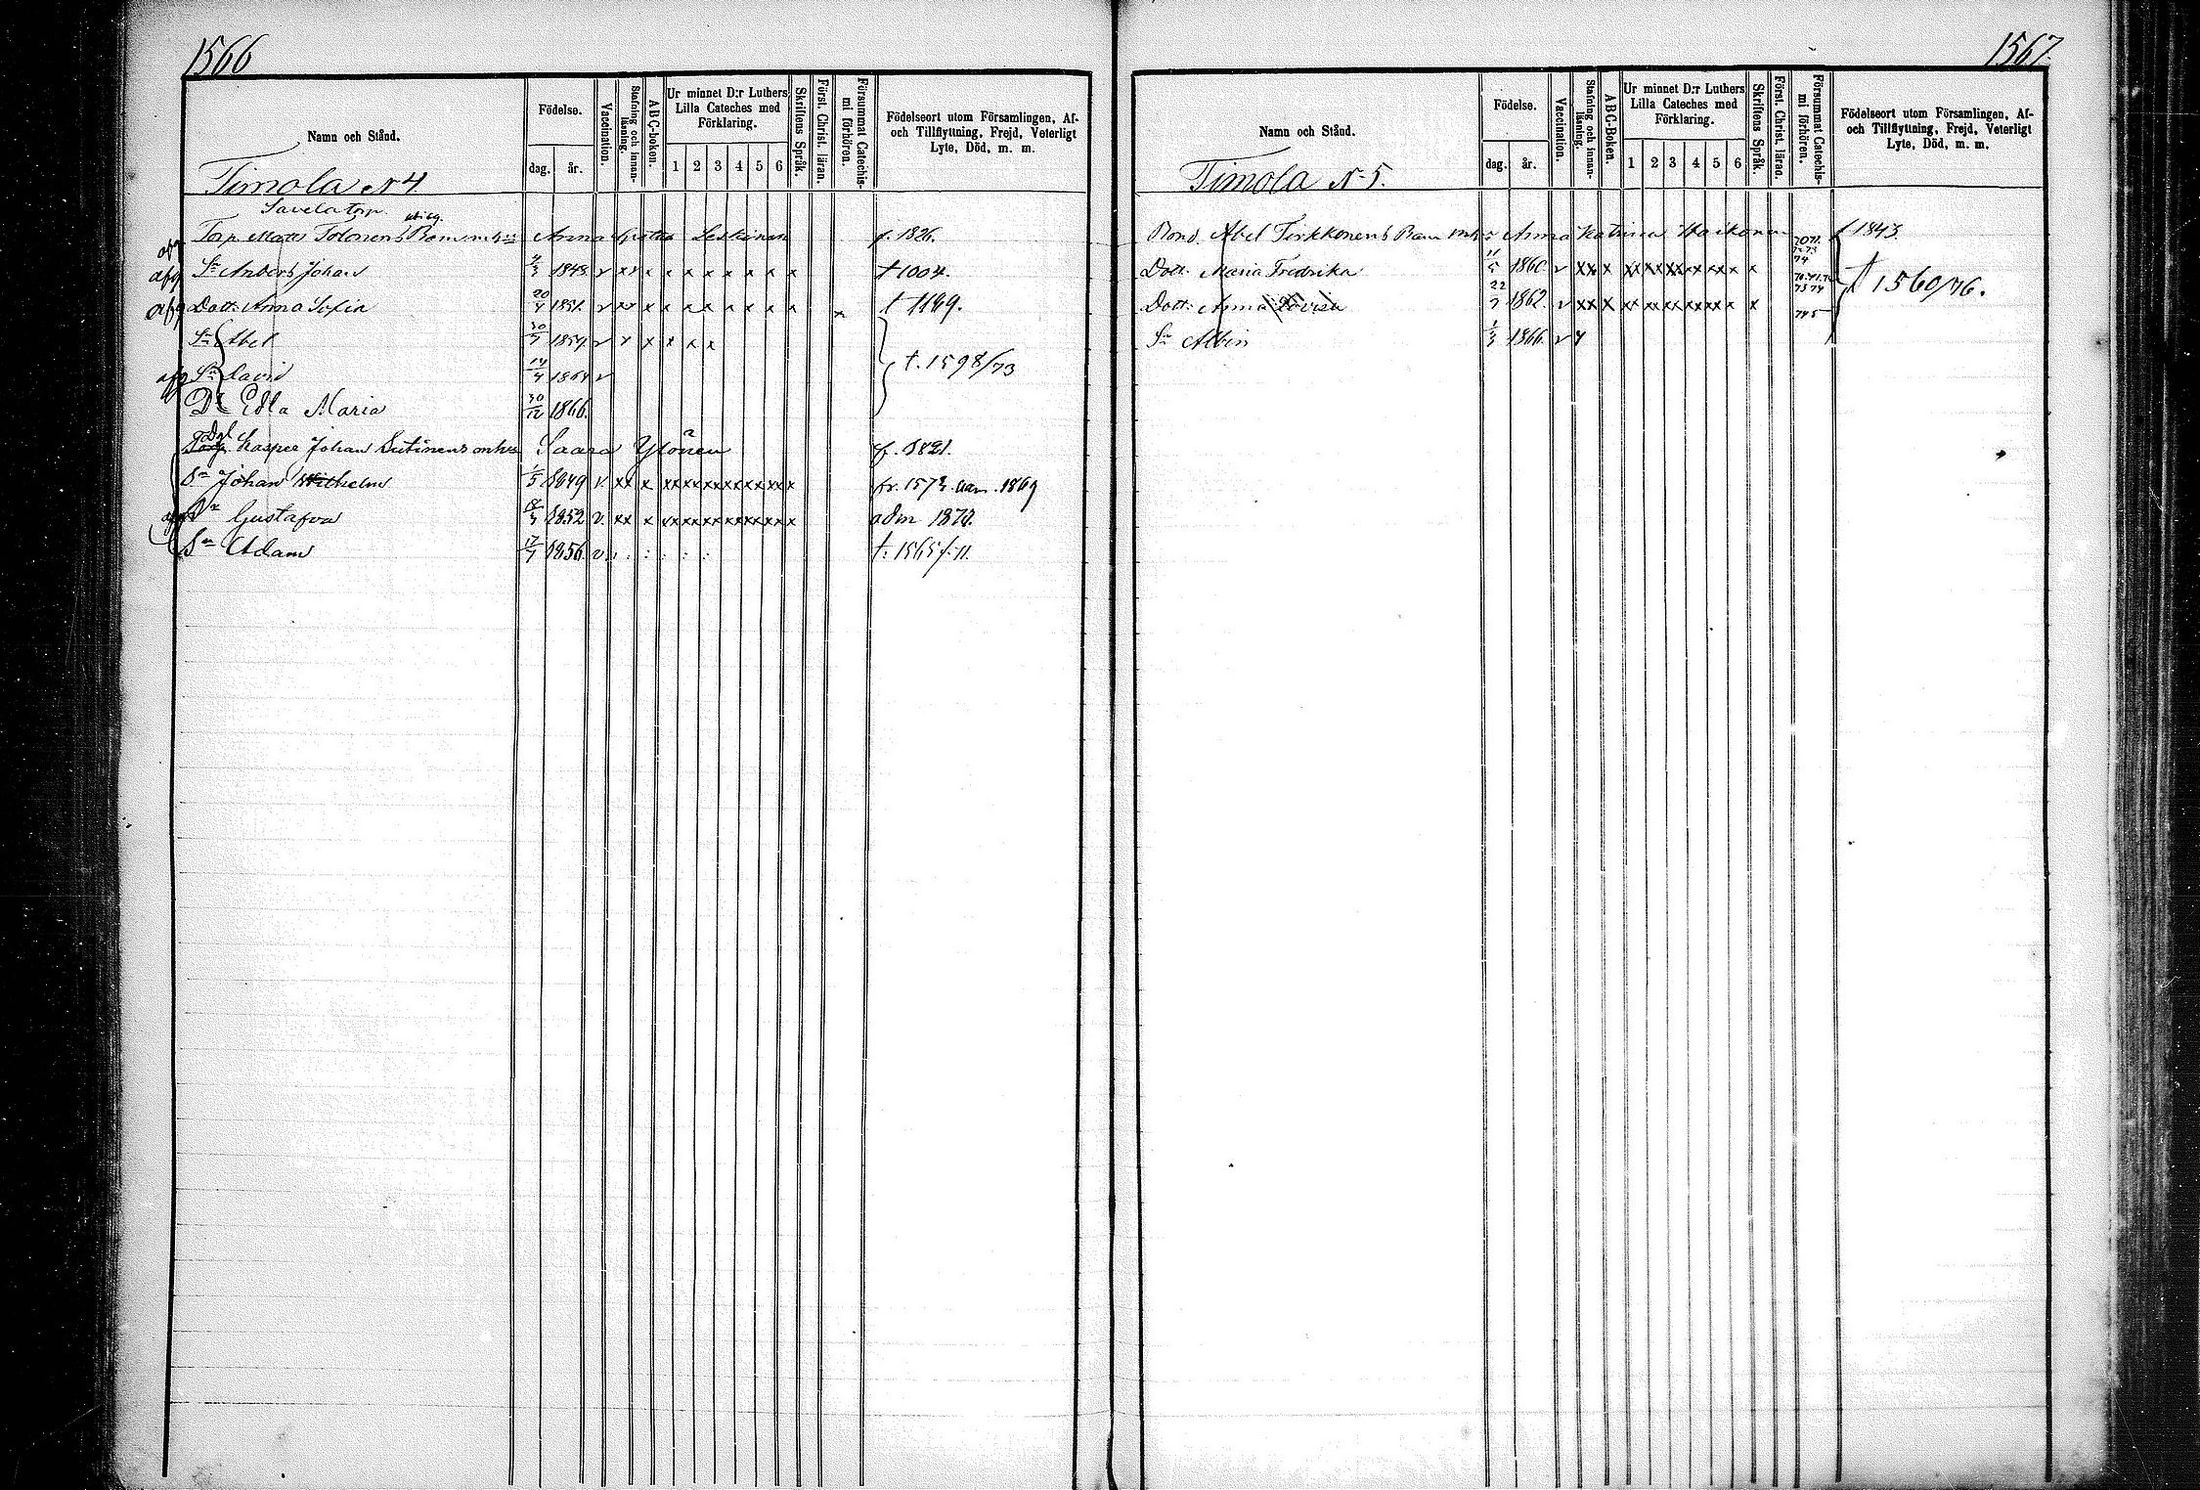 1566
Namn och Stånd.
Födelse.
dag.
år.
Vaccination.
Stafning och innan-
läsning.
A B C-boken.
Ur minnet D:r Luthers
Lilla Cateches med
Förklaring.
1 2 3 4 5 6
Skriftens Språk.
Först. Christ. läran.
Försummat Catechis-
mi förhören.
Födelseort utom Församlingen, Af-
och Tillflyttning, Frejd, Veterligt
Lyte, Död, m. m.
Timola N 4
Savela torp.
Torp. Matts Tolonens Barn Anna Leskinen f. 1826.
afg Sn Anders Johan 1848 v xx x x x x x x x x † 1004.
afg Dott: Anna Sofia 20/4 1851. v xx x x x x x x x x x † 1169.
Sn Abel 30/7 1859 v x x x x x
afg Sn David 14/4 1864 v t. 1598/73
Dr Edla Maria 30/12 1866.
Kasper Johan Sutinens Saara Ylönen f. 1821.
Sn Johan Wilhelm 1/5 1849 v. xx x xx xx xx xx xx xx x fr. 1573. 1869
Gustafva 1852 v. xx x xx xx xx xx xx xx x adm 1870.
Sn Adam 17/7 1856. v. t. 1565
1567.
Namn och Stånd.
Födelse.
dag.
år.
Vaccination.
Stafning och innan-
läsning.
A B C-Boken.
Ur minnet D:r Luthers
Lilla Cateches med
Förklaring.
1 2 3 4 5 6
Skriftens Språk.
Först. Christ. läran.
Försummat Catechis-
mi förhören.
Födelseort utom Församlingen, Af-
och Tillflyttning, Frejd, Veterligt
Lyte, Död, m. m.
Timola N 5.
Bond. Abel Tirkkonens Barn Anna Katrina Haikonen f 1843.
Dott: Maria Fredrika 11/5 1860. v xx x xx xx xx xx xx xx x
Dott: Anna Lovisa 22/7 1862. v xx x xx xx xx xx xx xx x t 1560/76.
Sn Albin 1866. v